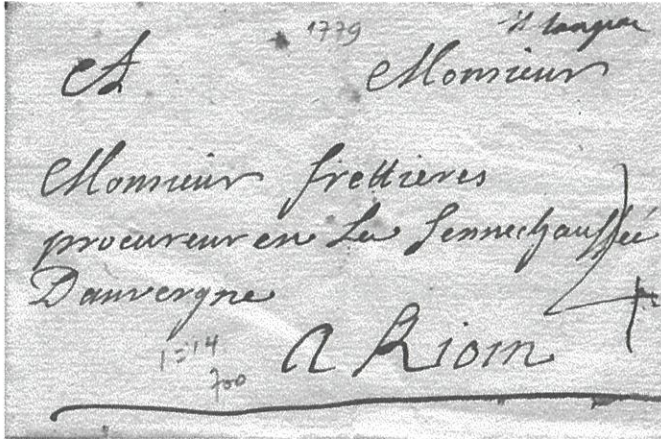 1779
A Monsieur
Monsieur frettieres
procureur en La Sennechaussée
Dauvergne
1=14
700
A Riom